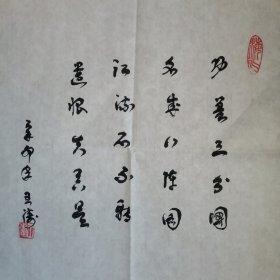 功盖三分国
名成八阵图
江流石不转
遗恨失吞吴